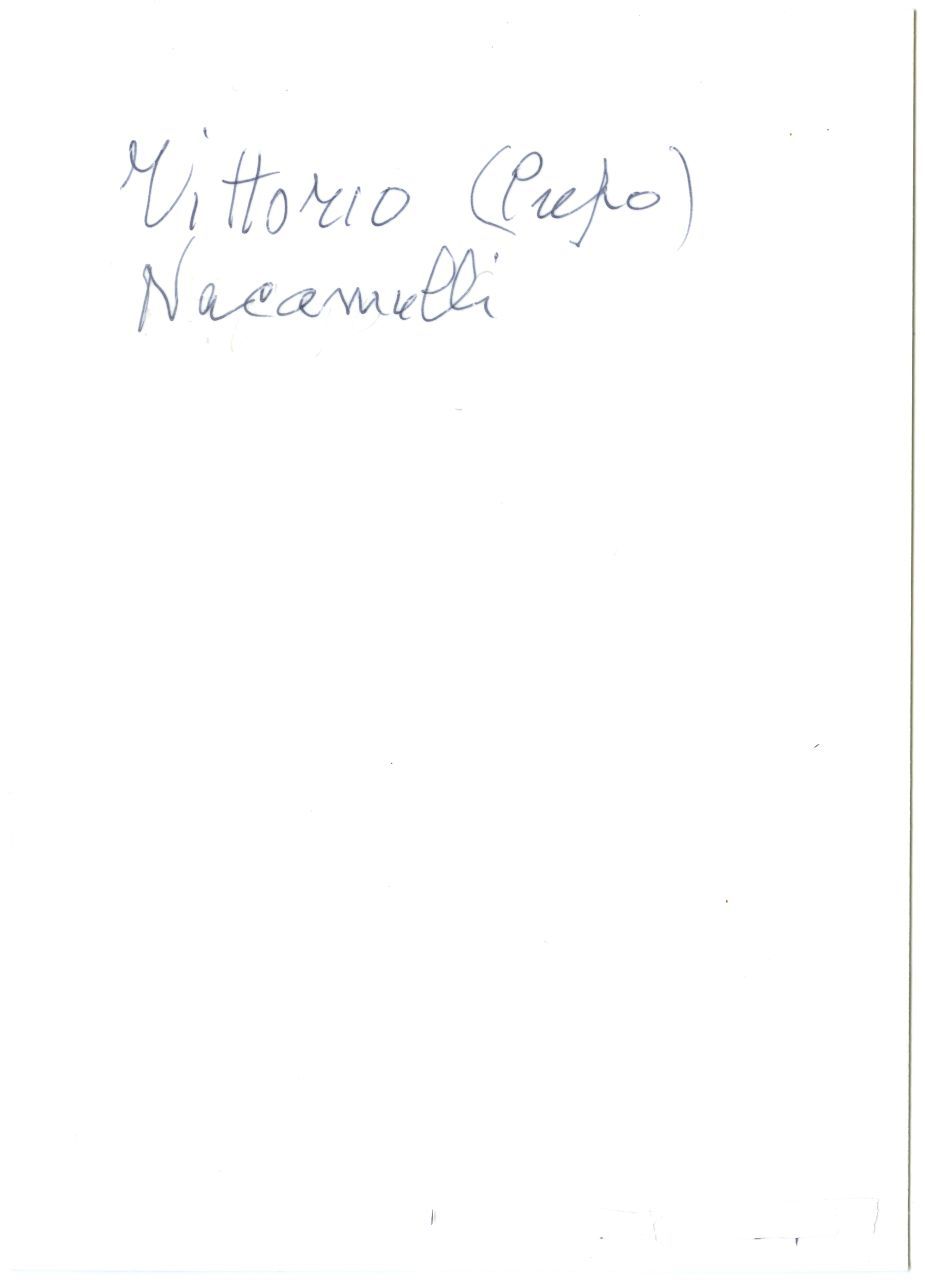 Vittorio
Nacamulli